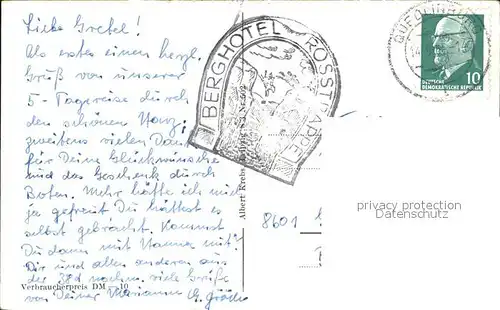 Liebe Gretel!
Als erstes einen herzl.
Gruß von unserer
5-Tagereise durch
den schönen Harz,
zweitens vielen Dank
für Deine Glückwünsche
und das Geschenk durch
Boten. Mehr hätte ich mich
ja gefreut Du hättest es
selbst gebracht. Kommst
Du dann mit Hanna mit?
Dir und allen anderen aus
der viele Grüße
von Deiner Marianne
Verbraucherpreis DM —,10
Albert Krebs
BERGHOTEL ROSSTRAPPE
QUEDLINBURG
10
DEUTSCHE
DEMOKRATISCHE REPUBLIK
8601
privacy protection
Datenschutz